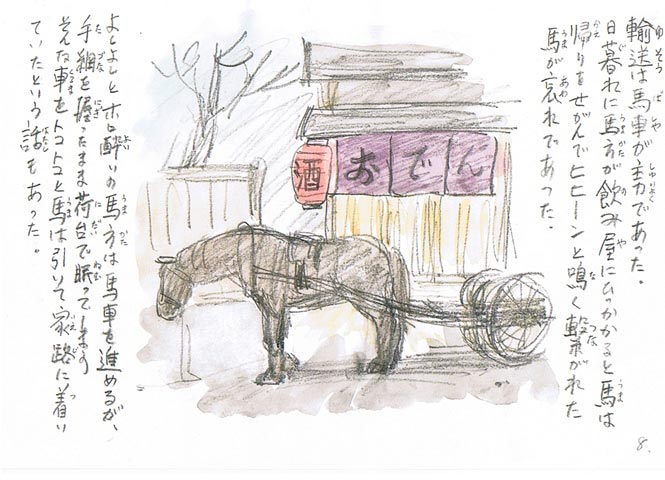 輸送は馬車が主力であった。
日暮れに馬方が飲み屋にひっかかると馬は
帰りをせがんでヒヒーンと鳴く繋がれた
馬が哀れであった.
酒
おでん
ホロ酔いの馬方は馬車を進めるが、
手綱を握ったまま荷台で眠ってしまう
そんな車をトコトコと馬は引いて家路に着い
ていたという話もあった。
8.